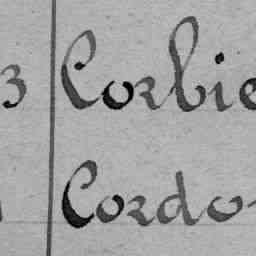 3 Corbie
Cordo